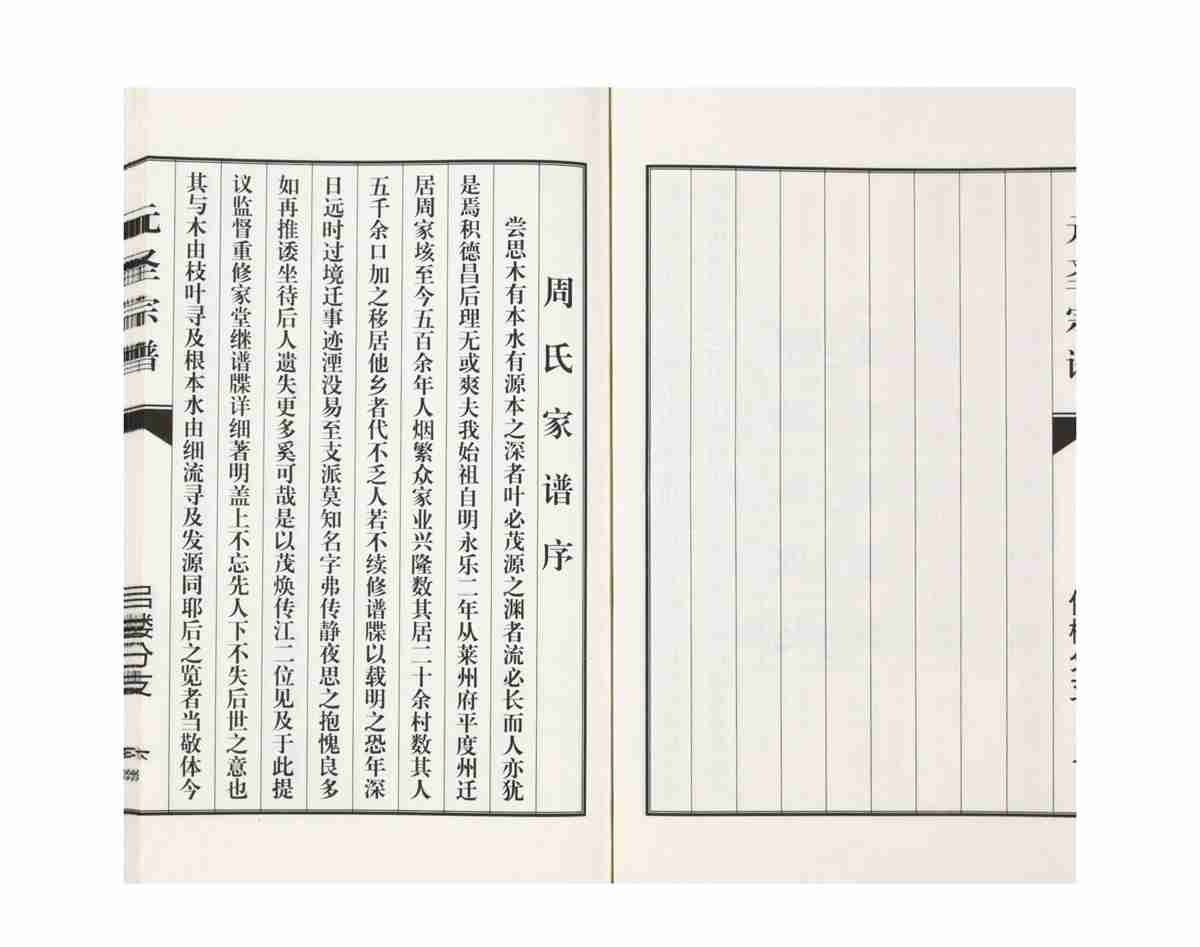 周氏家谱序
尝思木有本水有源本之深者叶必茂源之渊者流必长而人亦犹
是焉积德昌后理无或爽夫我始祖自明永乐二年从莱州府平度州迁
居周家垓至今五百余年人烟繁众家业兴隆数其居二十余村数其人
五千余口加之移居他乡者代不乏人若不续修谱牒以载明之恐年深
日远时过境迁事迹湮没易至支派莫知名字弗传静夜思之抱愧良多
如再推诿坐待后人遗失更多奚可哉是以茂焕传江二位见及于此提
议监督重修家堂继谱牒详细著明盖上不忘先人下不失后世之意也
其与木由枝叶寻及根本水由细流寻及发源同耶后之览者当敬体今
元圣宗谱